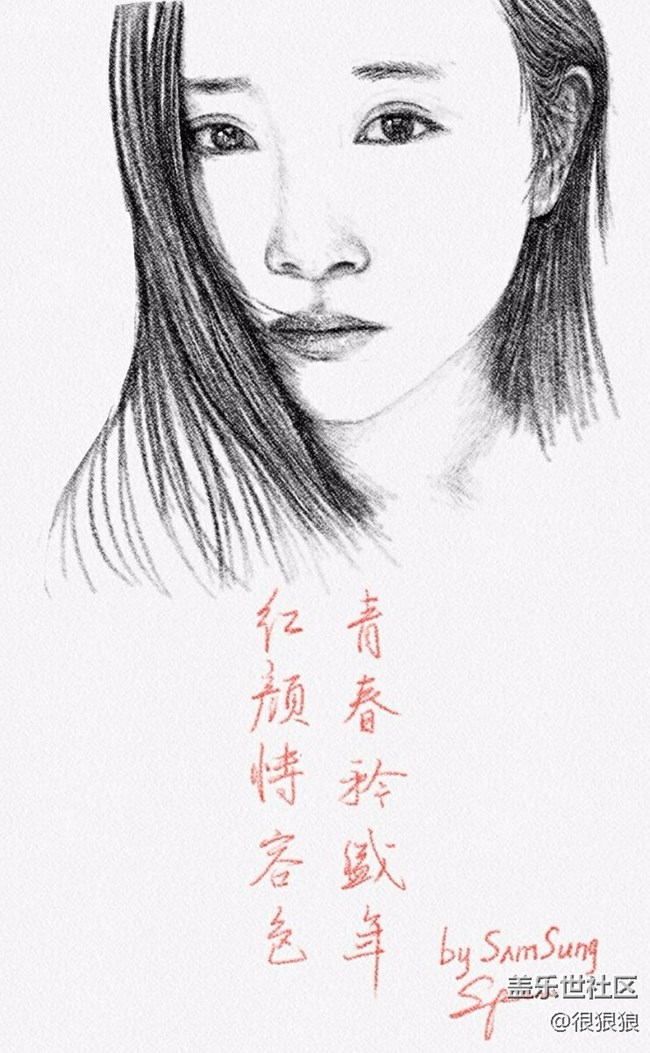 青春矜盛年
红颜恃容色
by SamSung
盖乐世社区
@很狠狼